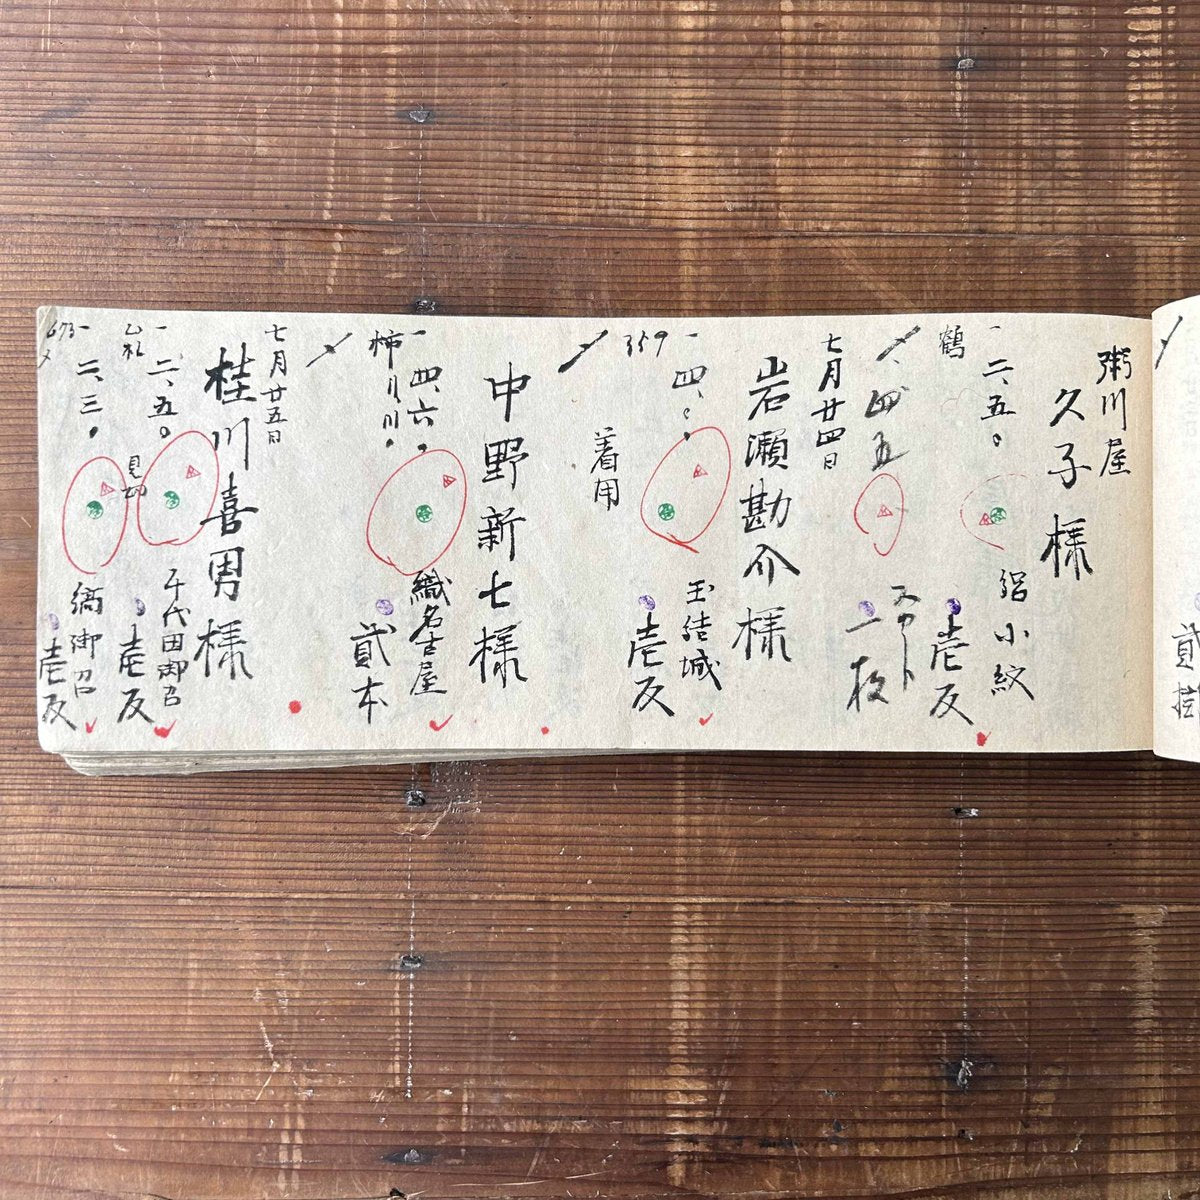 粥川屋
久子様
一二、五〇
絽小紋
鶴
壱反
四五
スカート
一枚
七月廿四日
岩瀬勘介様
一四、〇
玉結城
359
壱反
着用
中野新七様
一四、六〇
織名古屋
柿川川
貮本
七月廿五日
桂川喜男様
一二、五〇
千代田御召
乙札
見切
壱反
一二、三〇
縞御召
673
壱反
貮